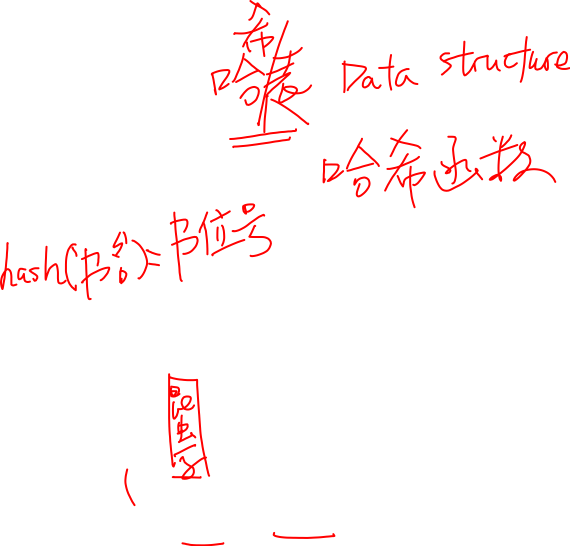 哈希表 Data structure
哈希函数
hash(书名)=书位号
昆虫